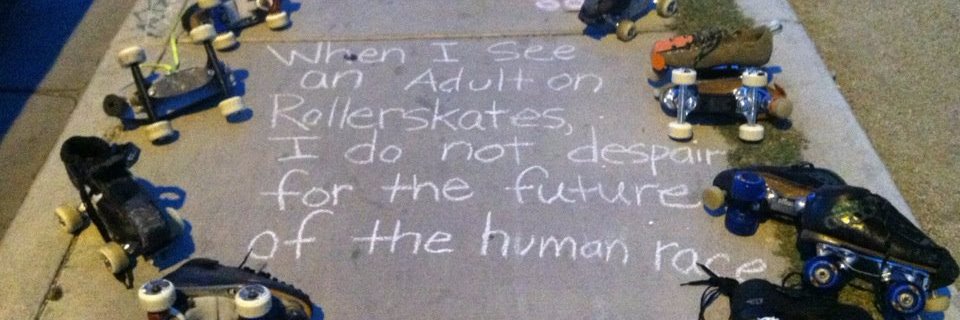 When I See
an Adult on
Rollerskates,
I do not despair
for the future
of the human race